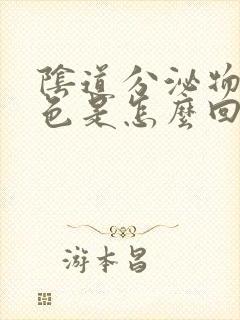 陰道分泌物
色是怎麼回
游本昌